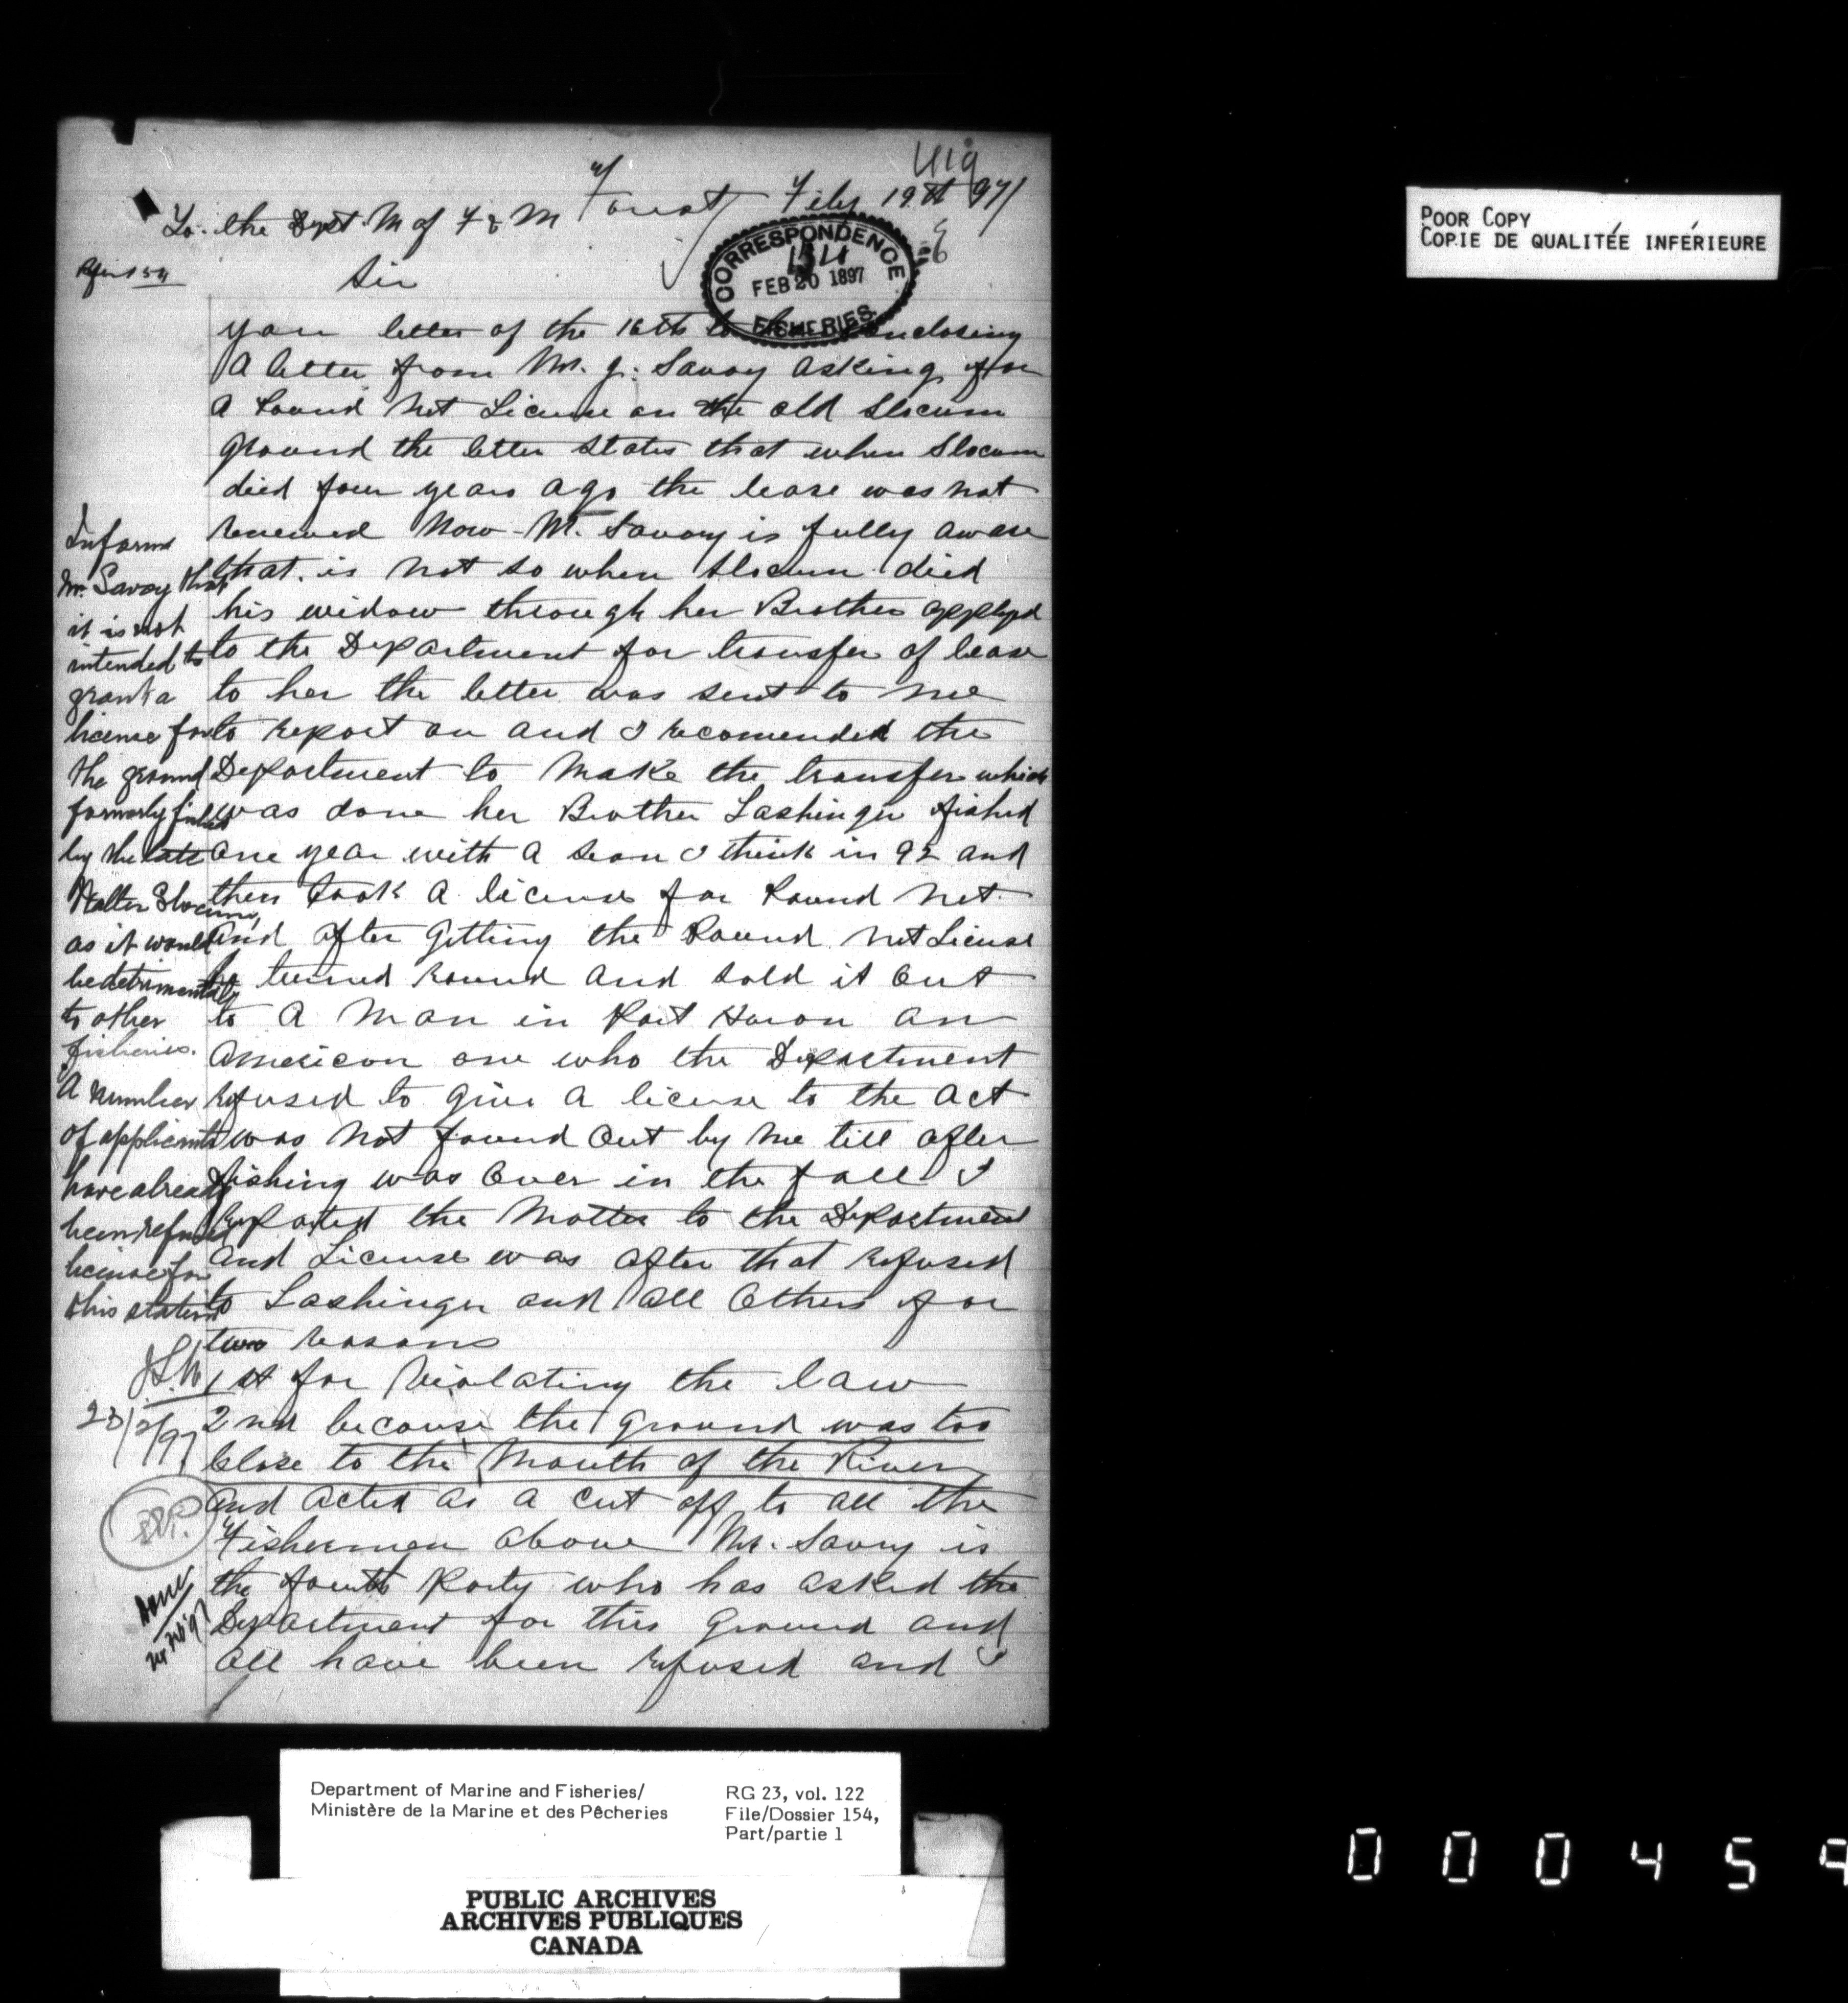 419
Forest Feby 19th 97/
To. the Dept. M of F & M
CORRESPONDENCE
154
FEB 20 1897
FISHERIES
Refer 154
Sir
your letter of the 16th to hand enclosing
A letter from Mr. J. Savoy asking for
a Pound Net License on the old Slocum
ground the letter states that when Slocum
died four years ago the lease was not
renewed Now Mr. Savoy is fully aware
that is not so when Slocum died
his widow through her Brother applyed
to the Department for transfer of lease
to her the letter was sent to me
to report on and I recomended the
Department to Make the transfer which
was done her Brother Lashinger fished
one year with a Sean I think in 92 and
then took A license for Pound Net
and after getting the Pound Net License
he turned round and sold it out
to A Man in Port Huron an
American one who the Department
refused to give a license to the Act
was Not found out by me till after
fishing was over in the fall I
reported the Matter to the Department
and License was after that refused
to Lashinger and all Others for
two reasons
1st for Violating the law
2nd because the ground was too
Close to the Mouth of the River
and acted as a cut off to all the
Fishermen above Mr. Savoy is
the fourth Party who has asked the
Department for this ground and
all have been refused and I
Inform
Mr. Savoy that
it is not
intended to
grant a
license for
the ground
formerly fished
by the late
Walter Slocum,
as it would
be detrimental
to other
fisheries.
A number
of applicants
have already
been refused
license for
this station
23/2/97
Done
POOR COPY
COPIE DE QUALITÉE INFÉRIEURE
Department of Marine and Fisheries/
Ministère de la Marine et des Pêcheries
RG 23, vol. 122
File/Dossier 154,
Part/partie 1
PUBLIC ARCHIVES
ARCHIVES PUBLIQUES
CANADA
000459